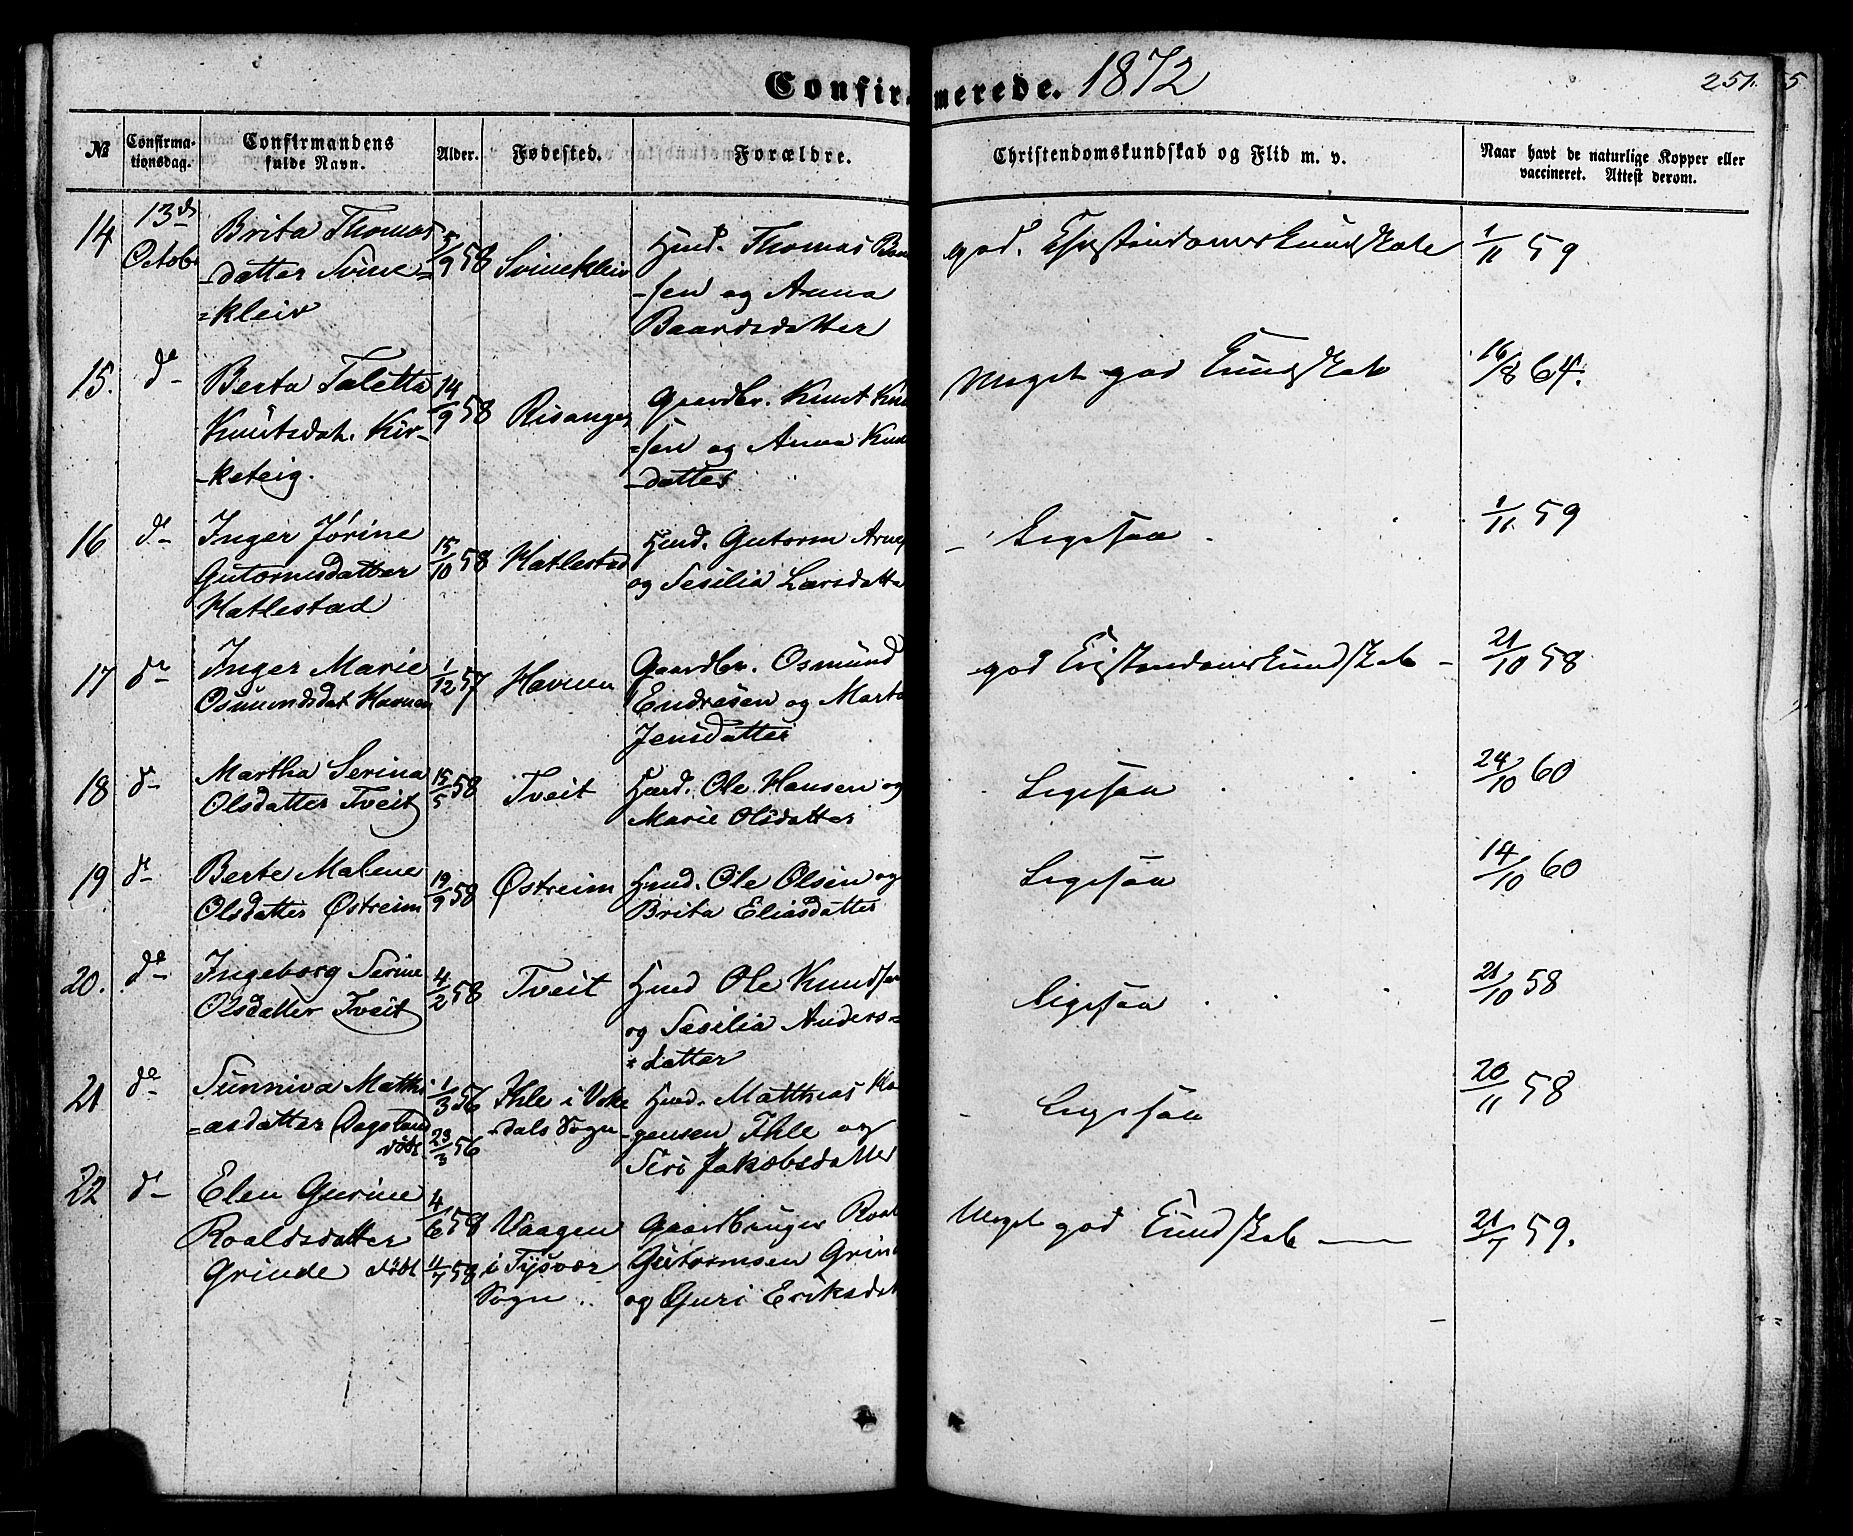 Confirmerede. 1872
251.
№ Confirmationsdag. Confirmandens fulde Navn. Alder. Fødested. Forældre. Christendomskundskab og Flid m. v. Naar havt de naturlige Kopper eller vaccineret. Attest derom.
14 13de Octob Brita Thomas 5/9 58 Svinekleiv Huusm. Thomas god. Christendomskundskab 1/11 59
-datter Svine= -sen og Anna
=kleiv Baardsdatter
15. do Berta Taletta 14/9 58 Risanger Gaardbr. Knut Meget god Kundskab 16/8 64.
Knutsdat. Kir- =sen og Anna
-keteig. -datter
16 do Inger Jørine 15/10 58 Hatlestad Huusm. Gutorm - Ligesaa 1/11. 59
Gutormsdatter og Sesilia Larsdatte
Hatlestad
17 do Inger Marie 1/12 57 Havnen Gaardbr. Osmund god Cristendomskundskab - 21/10 58
Osmundsdat Havnen Endresen og Marta
Jensdatter
18 do Martha Serina 15/5 58 Tveit Huusm. Ole Hansen og Ligesaa 24/10 60
Olsdatter Tveit Marie Olsdatter
19 do Berte Malene 19/9 58 Østreim Huusm. Ole Olsen og Ligesaa 14/10 60
Olsdatter Østreim Brita Eliasdatter
20. do Ingeborg Serine 4/2 58 Tveit Huusm Ole Knudsen Ligesaa 21/10 58
Olsdatter Tveit og Sesilia Anders=
=datter
21 do Sunniva Matthi 1/3 56 Ihle i Vike Huusm. Matthias Ligesaa 20/11 58
=asdatter Dagsland -dals Sogn -gensen Ihle og
døbt 23/3 56 Siri Jakobsdatter
22 do Elen Gurine 4/6 58 Vaagen Gaardbruger Roal Meget god Kundskab 21/7 59.
Roaldsdatter i Tysvær Gutormsen Grin
Grinde døbt 11/7 58 Sogn .. og Guri Eriksdat